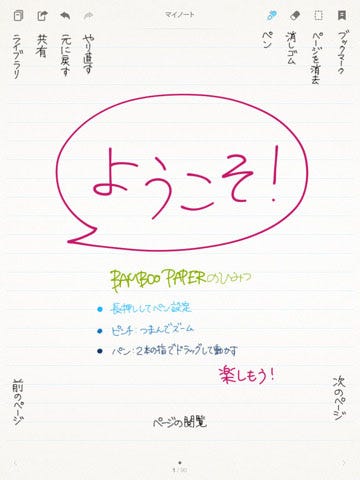 マイノート
ライブラリ
共有
元に戻す
やり直す
ペン
消しゴム
ページを消去
ブックマーク
ようこそ!
BAMBOO PAPERのひみつ
• 長押ししてペン設定
• ピンチ:つまんでズーム
• パン:2本の指でドラッグして動かす
楽しもう!
前のページ
次のページ
ページの閲覧
1 / 90